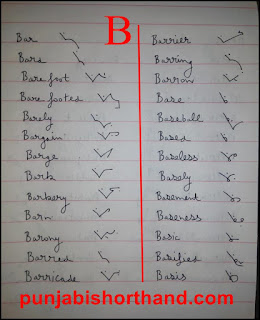 B
Bar
Bare
Bare foot
Bare footed
Barely
Bargain
Barge
Bark
Barkery
Barn
Barony
Barred
Barricade
Barrier
Barring
Barrow
Base
Baseball
Based
Baseless
Basely
Basement
Baseness
Basic
Basified
Basis
punjabishorthand.com